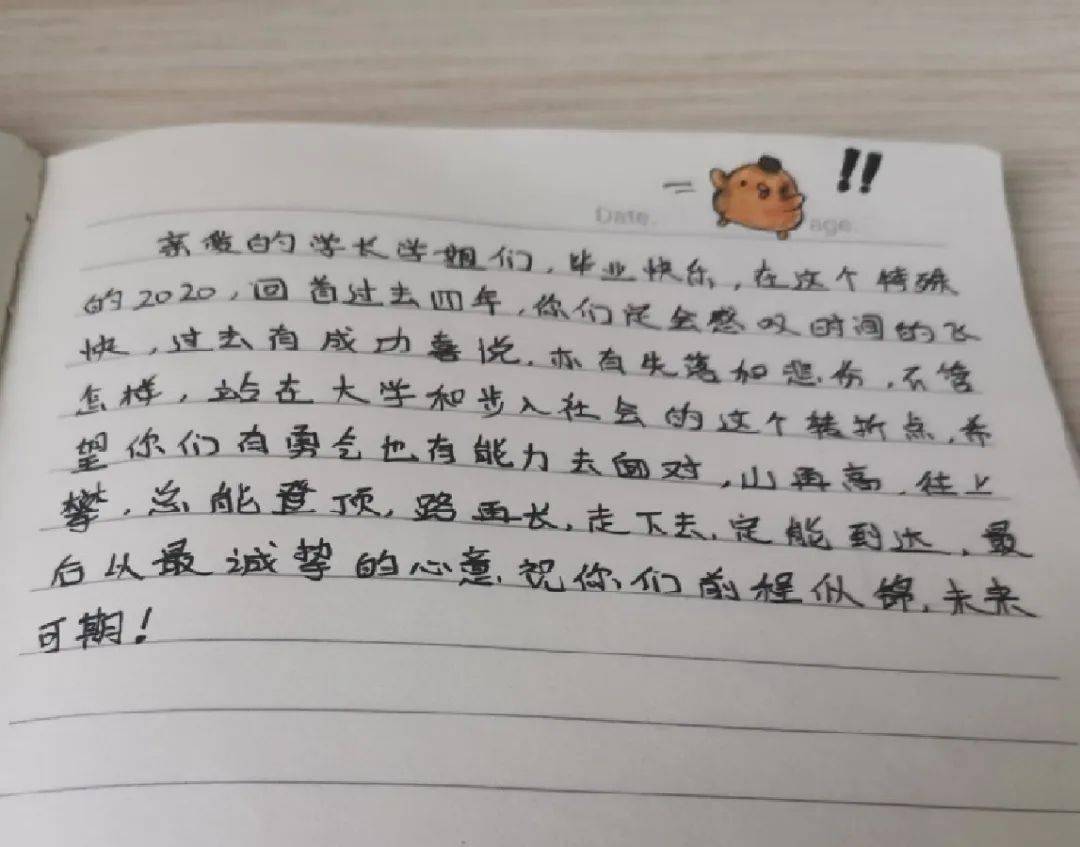 Date.
age.
!!
亲爱的学长学姐们,毕业快乐,在这个特殊
的2020,回首过去四年,你们定会感叹时间的飞
快,过去有成功喜悦,亦有失落和悲伤,不管
怎样,站在大学和步入社会的这个转折点,希
望你们有勇气也有能力去面对,山再高,往上
攀,总能登顶,路再长,走下去,定能到达,最
后以最诚挚的心意,祝你们前程似锦,未来
可期!